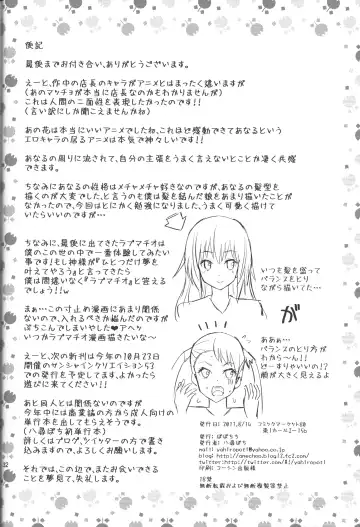 後記
最後までお付き合い、ありがとうございます。
えーと、作中の店長のキャラがアニメとはまったく違いますが
(あのマッチョが本当に店長なのかもわかりませんが)
これは人間の二面殻を表現したかったのです!!
(言い訳にしか聞こえませんね)
あの花は本当にいいアニメでしたね、これほど感動できてあなるという
エロキャラの居るアニメは本気で神々しいです!!
あなるの周りに流されて、自分の主張をうまく言えないとことか凄く共感
できます。
ちなみにあなるの総格はメチャメチャ好きなのですが、あなるの髪型を
描くのが大変でした、と言うのも僕は髪を結んだ娘をあまり描いたことが
なかったので、今回はとにかく勉強になりました、うまく可動く描けて
いたらいいのですが、
ちなみに、最後に出てきたラブマチオは
僕のこの世の中で一番体験したみたい
事です!!もし神様が『ひとつだけ夢を
叶えてやろう』と言ってきたら
僕は間違いなく『ラブマチオ』と答える
でしょう!!w
まぁ…この寸止め漫画にあまり関係
ないので、入れるべきか悩んだのですが
ぶちこんでしまいやした♥アヘッ
いつかラブマチオ漫画描きたいな~
えーと、次の新刊は今年の10月23日
開催のサンシャインクリエイション53
での発行を予定してます、よかったら
遊びに来てください。
あと同人とは関係ないのですが
今年中には商業誌の方から成人向けの
単行本を出してもらえそうです。
(八尋ぽち初単行本)
詳しくはブログ、ツイッターの方で書き
込みますので、よろしくお願いします。
それでは、この辺で、またお会いできる
ことを夢見て、失礼します。
いつも髪を盛って
バランスをとり
ながら描いてた…
ああぁ…
バランスのとり方が
わからん~!!
どーすりゃいいの!?
顔が大きく見えるよ
発行日:2011,8/14 コミックマーケット80
発行:ぽぽちち
発行者:八尋ぽち
印刷:コーシン出版様
18禁
無断転載および無断複製禁止